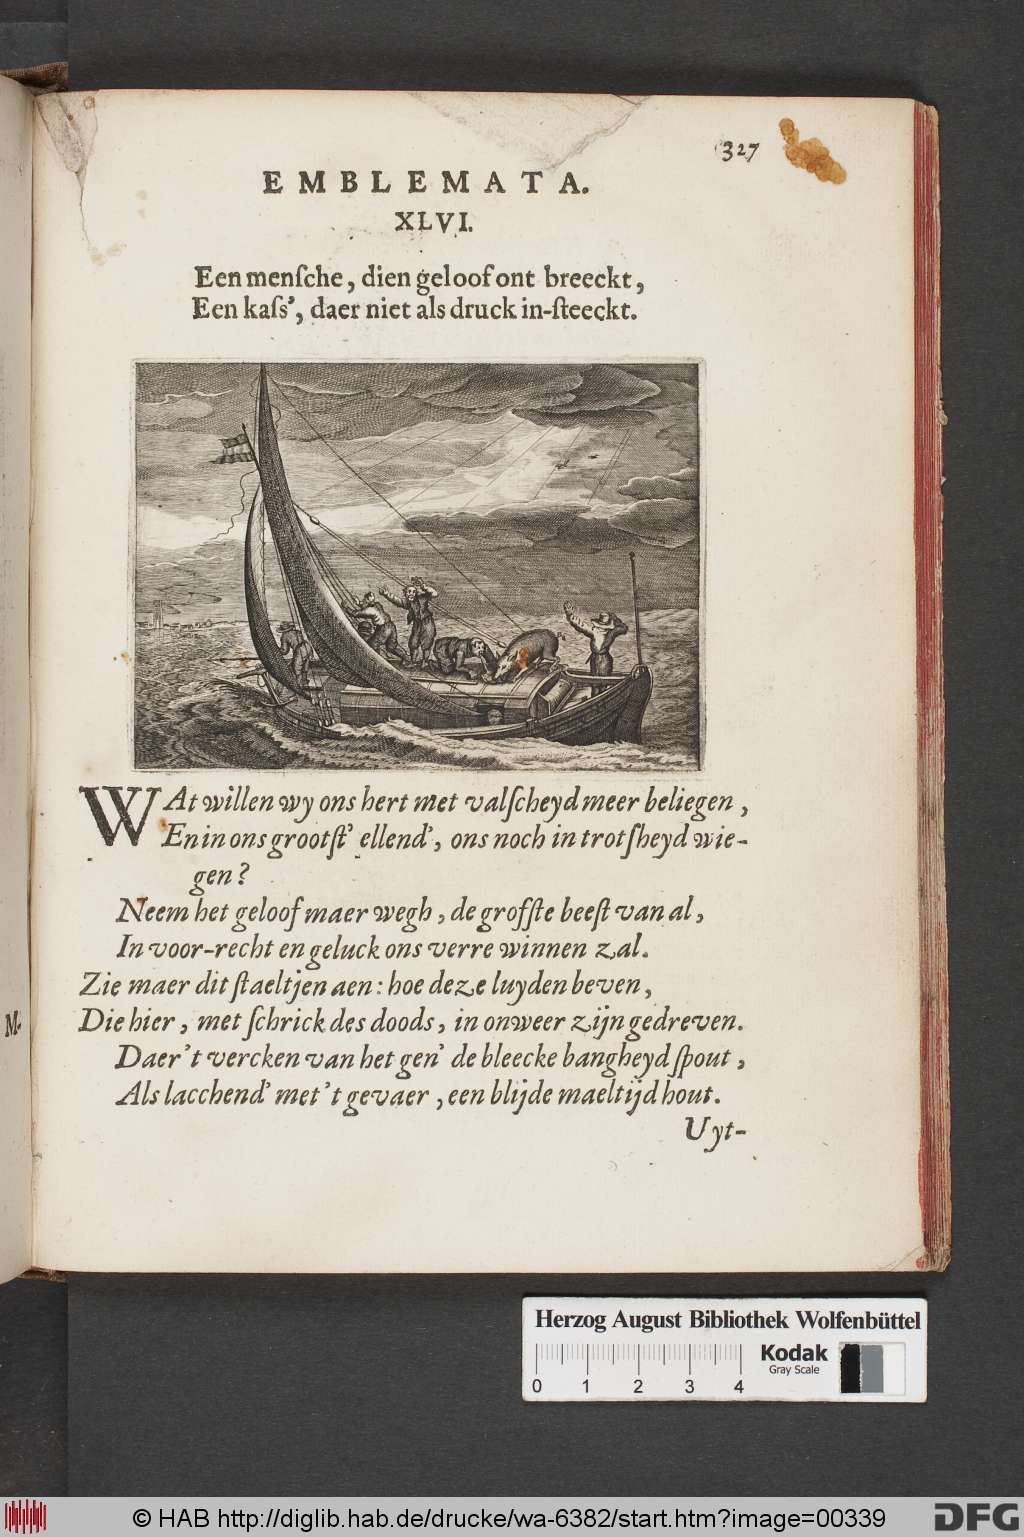 327
EMBLEMATA.
XLVI.
Een menſche, dien geloof ont breeckt,
Een kaſs', daer niet als druck in-ſteeckt.
WAt willen wy ons hert met valſcheyd meer beliegen,
En in ons grootſt' ellend', ons noch in trotſheyd wie-
gen?
Neem het geloof maer wegh, de grofſte beeſt van al,
In voor-recht en geluck ons verre winnen zal.
Zie maer dit ſtaeltjen aen: hoe deze luyden beven,
Die hier, met ſchrick des doods, in onweer zijn gedreven.
Daer 't vercken van het gen' de bleecke bangheyd ſpout,
Als lacchend' met 't gevaer, een blijde maeltijd hout.
Uyt-
M.
Herzog August Bibliothek Wolfenbüttel
Kodak
Gray Scale
0 1 2 3 4
© HAB http://diglib.hab.de/drucke/wa-6382/start.htm?image=00339
DFG